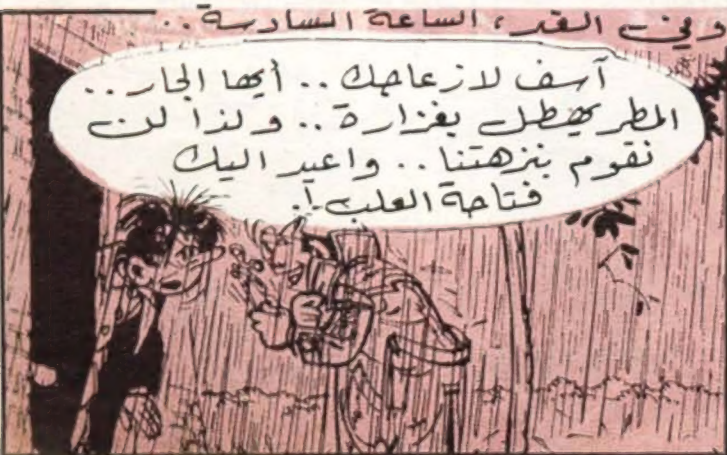 وفي الغد، الساعة السادسة..
آسف لازعاجك.. أيها الجار..
المطر يهطل بغزارة.. ولذا لن
نقوم بنزهتنا.. واعيد اليك
فتاحة العلب!.